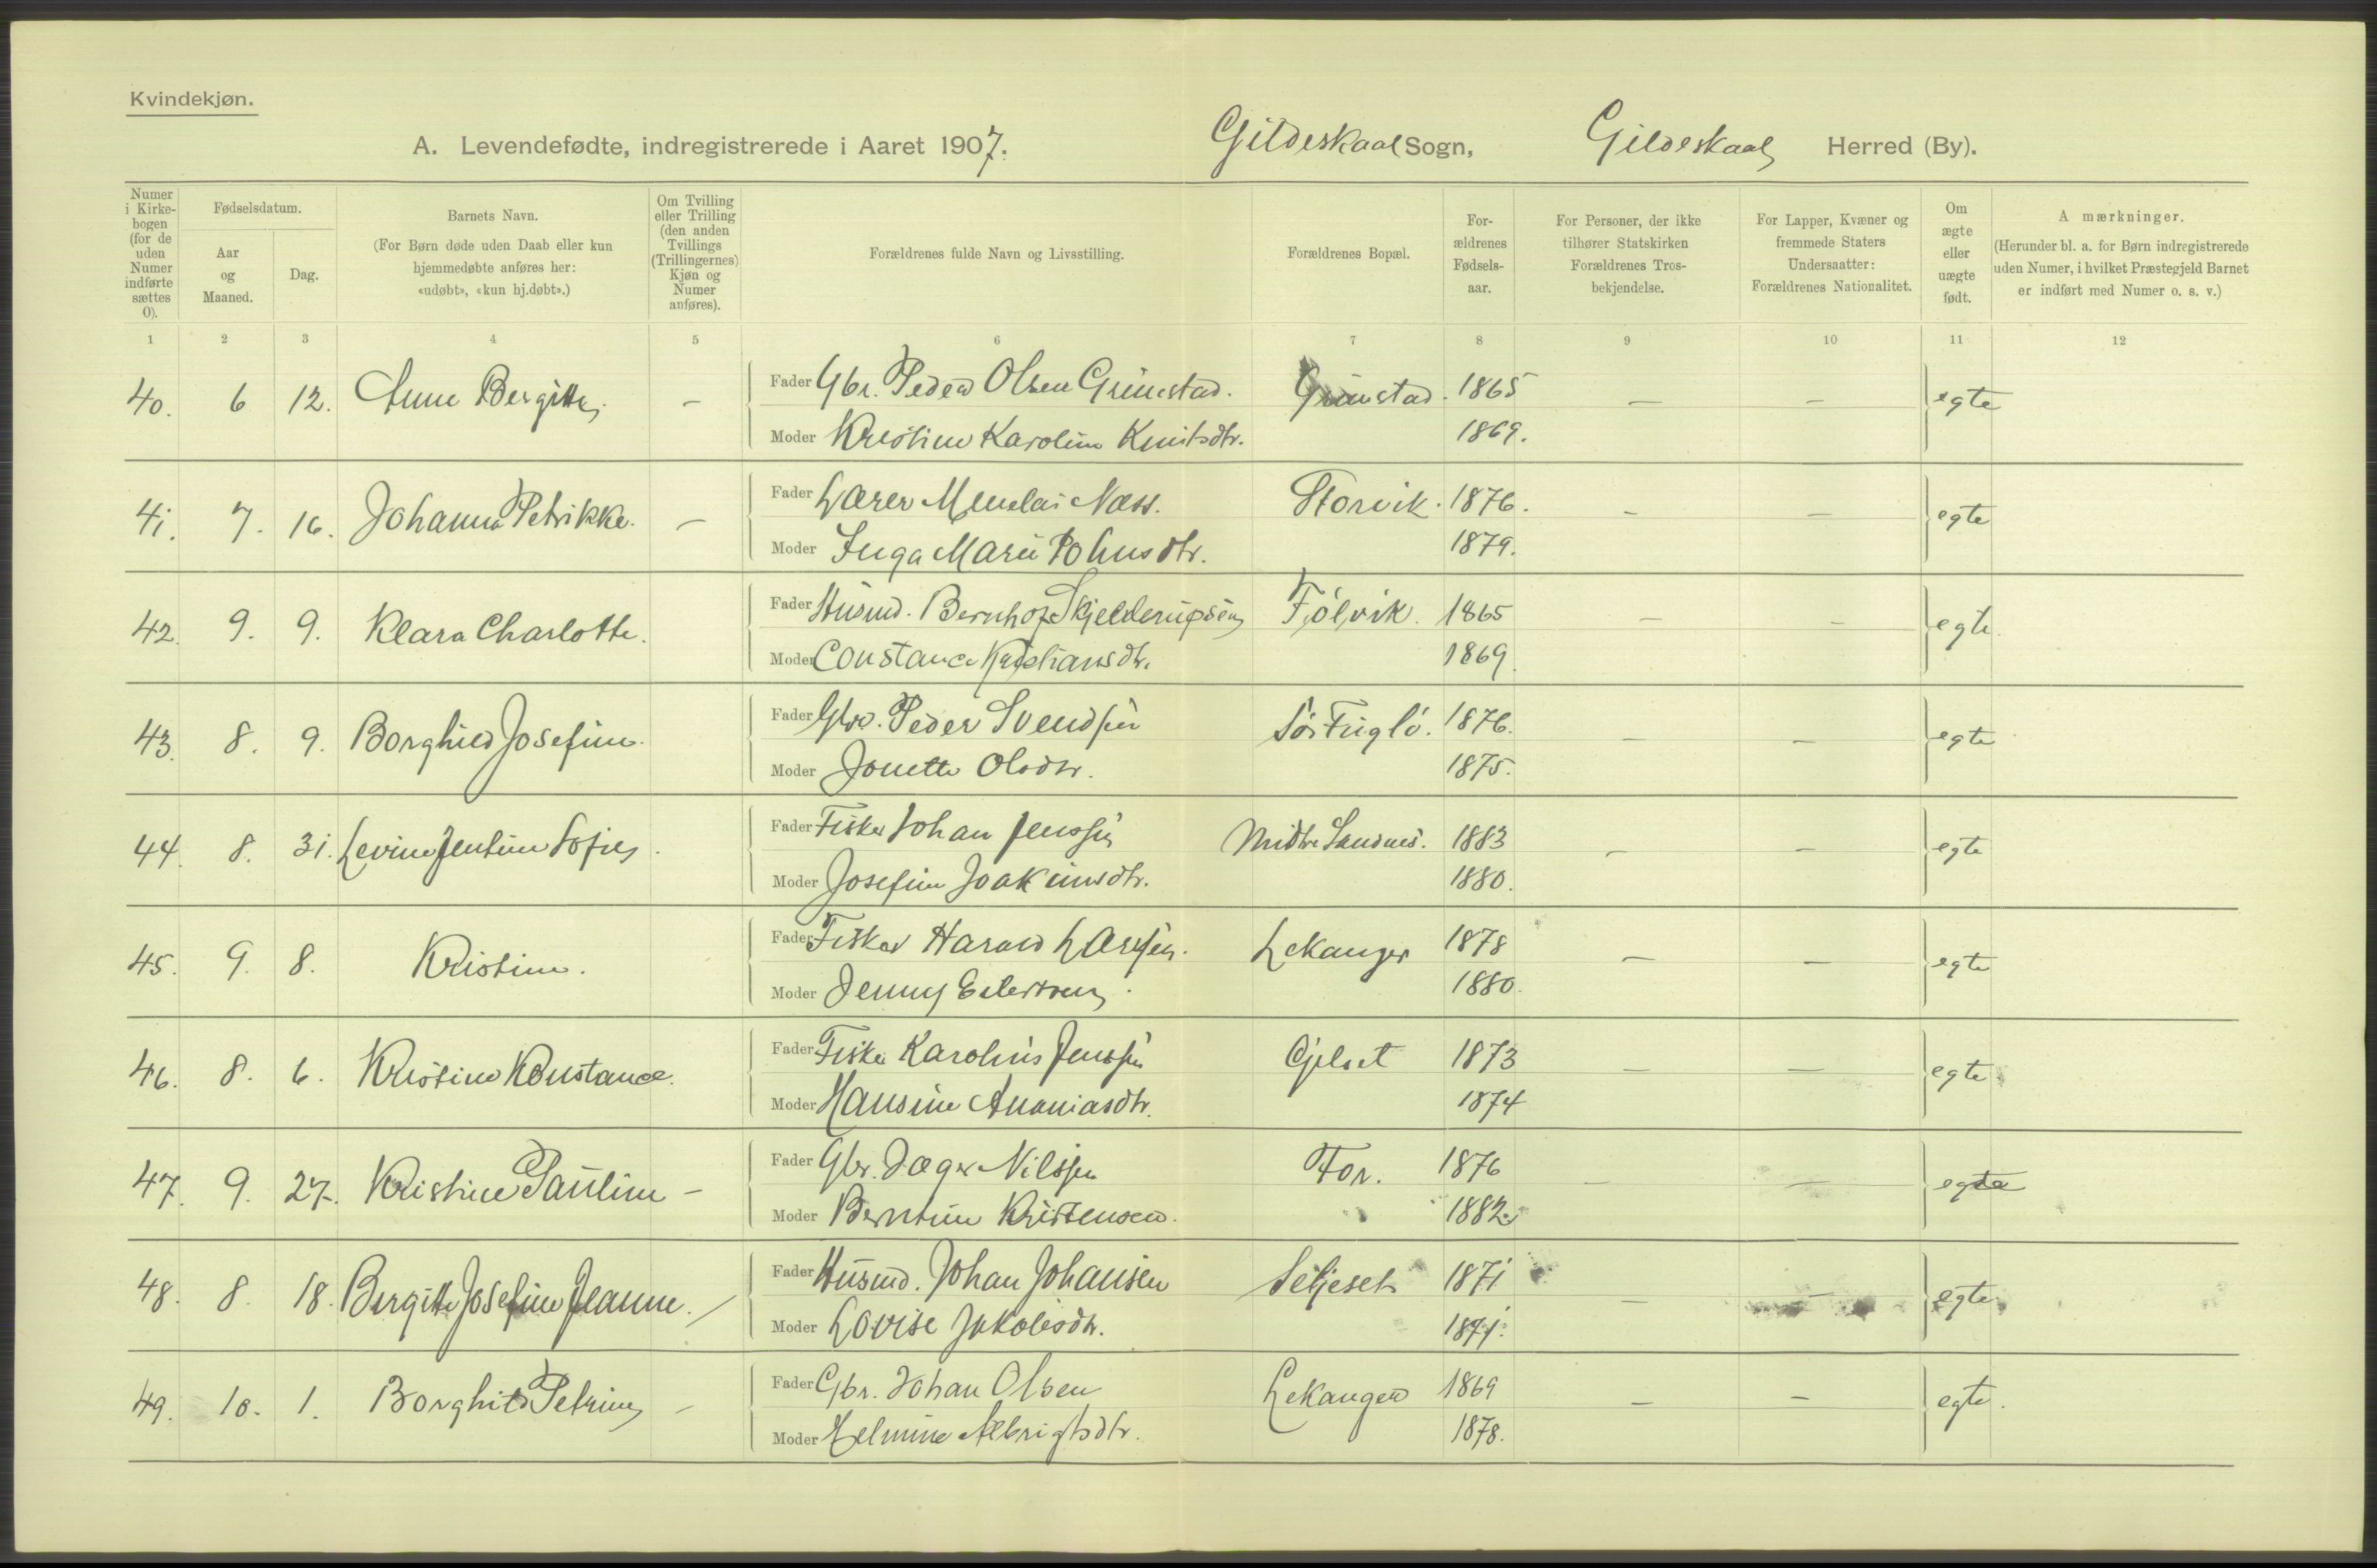 Kvindekjøn.
A. Levendefødte, indregistrerede i Aaret 1907. Gildeskaal Sogn, Gildeskaal Herred (By).
Numer i Kirkebogen (for de uden Numer indførte sættes 0).
Fødselsdatum.
Aar og Maaned.
Dag.
Barnets Navn.
(For Børn døde uden Daab eller kun hjemmedøbte anføres her: «udøbt», «kun hj.døbt».)
Om Tvilling eller Trilling (den anden Tvillings (Trillingernes) Kjøn og Numer anføres).
Forældrenes fulde Navn og Livsstilling.
Forældrenes Bopæl.
For-ældrenes Fødsels-aar.
For Personer, der ikke tilhører Statskirken Forældrenes Tros-bekjendelse.
For Lapper, Kvæner og fremmede Staters Undersaatter: Forældrenes Nationalitet.
Om ægte eller uægte født.
A mærkninger.
(Herunder bl. a. for Børn indregistrerede uden Numer, i hvilket Præstegjeld Barnet er indført med Numer o. s. v.)
1 2 3 4 5 6 7 8 9 10 11 12
40. 6 12. Anne Bergitte. – Fader Gbr. Peder Olsen Grimstad. Grimstad. 1865 – – egte
Moder Kristine Karoline Knutsdtr. 1869.
41. 7. 16. Johanna Petrikke. – Fader Lærer Menelai Næss. Storvik. 1876. – – egte
Moder Inga Marie Johnsdtr. 1879.
42. 9. 9. Klara Charlotte. Fader Husmd. Bernhof Skjelderupsen Følvik. 1865 – – egte
Moder Constance Kristiansdtr. 1869.
43. 8. 9. Borghild Josefine. Fader Gbr. Peder Svendsen Sør Fuglø. 1876. – – egte
Moder Jonette Olsdtr. 1875.
44. 8. 31. Levine Jentine Sofie. Fader Fisker Johan Jenssen Midtre Sandnes. 1883 – – egte
Moder Josefine Joakimsdtr. 1880.
45. 9. 8. Kristine. Fader Fisker Harald Larssen. Lekanger 1878 – – egte
Moder Jenny Eilertsen. 1880.
46. 8. 6. Kristine Konstance. Fader Fisker Karolius Jenssen Gjelset 1873 – – egte
Moder Hansine Ananiasdtr. 1874
47. 9. 27. Kristine Pauline – Fader Gbr. Dæger Nilssen For. 1876 – – egte
Moder Berntine Kristensen. 1882.
48. 8. 18. Bergitte Josefine Jeanne. – Fader Husmd. Johan Johansen Seljeset 1871 – – egte
Moder Lovise Jakobsdtr. 1871.
49. 10. 1. Borghild Petrine – Fader Gbr. Johan Olsen Lekanger 1869 – – egte.
Moder Helmine Albrigtsdtr. 1878.